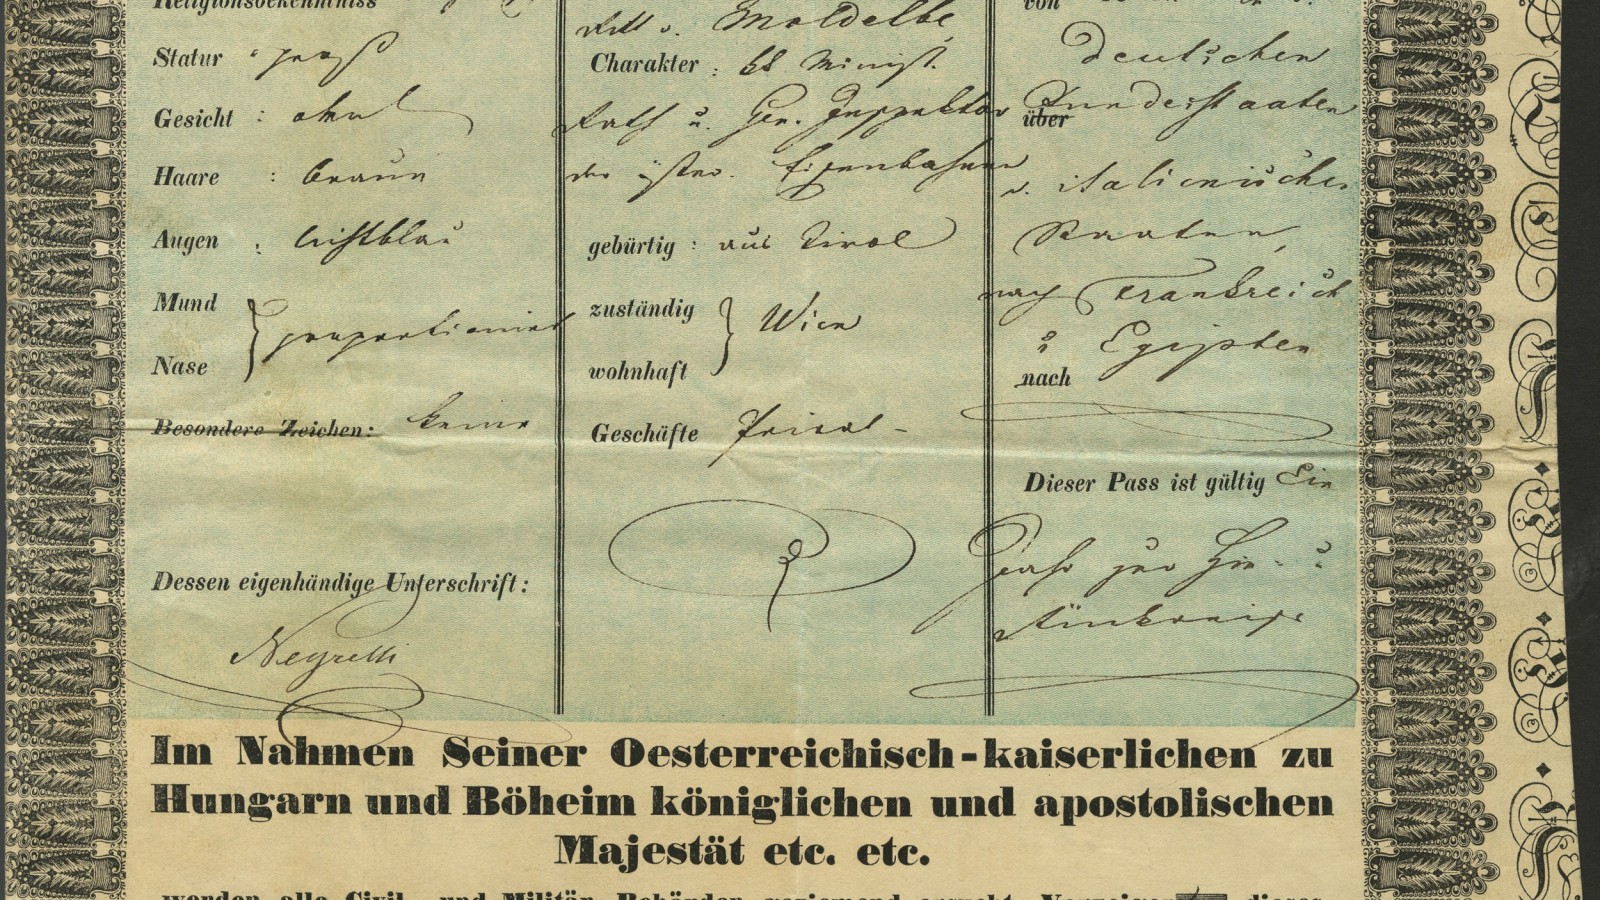 Religionsbekenntniss
Statur groß
Gesicht : oval
Haare : braun
Augen : lichtblau
Mund
Nase } proportionirt
Besondere Zeichen: keine
Dessen eigenhändige Unterschrift:
Negrelli
Ritt v. Moldelbe
Charakter : kk Minist.
Rath u. Gen. Inspektor
der österr. Eisenbahnen
gebürtig : aus Tirol
zuständig
wohnhaft } Wien
Geschäfte Privat-
von
deutschen
Bundesstaaten
über
u. italienischen
Staaten,
nach Frankreich
u Egipten
nach
Dieser Pass ist gültig Ein
Jahr zur Hin- u
Rückreise
Im Nahmen Seiner Oesterreichisch-kaiserlichen zu
Hungarn und Böheim königlichen und apostolischen
Majestät etc. etc.
werden alle Civil- und Militär Behörden geziemend ersucht, Vorzeiger dieses